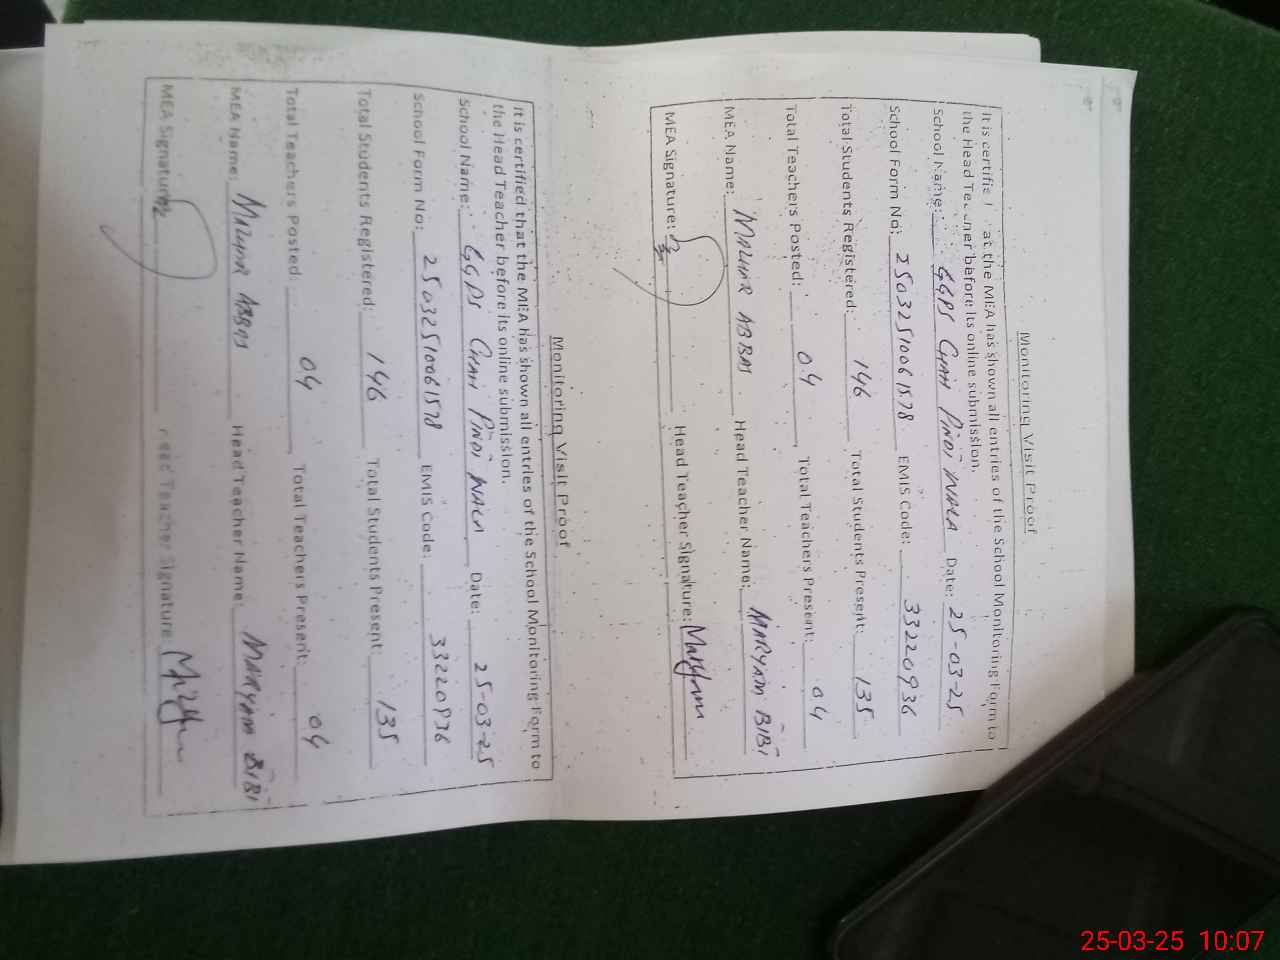 Monitoring Visit Proof
It is certifie at the MEA has shown all entries of the School Monitoring Form to
the Head Teacher before its online submission.
School Name: GGPS CHAH PINDI WALA Date: 25-03-25
School Form No: 25032510061578 EMIS Code: 33220936
Total Students Registered: 146 Total Students Present: 135
Total Teachers Posted: 04 Total Teachers Present: 04
MEA Name: MAZHAR ABBAS Head Teacher Name: MARYAM BIBI
MEA Signature: Head Teacher Signature: Maryam
Monitoring Visit Proof
It is certified that the MEA has shown all entries of the School Monitoring Form to
the Head Teacher before its online submission.
School Name: GGPS CHAH PINDI WALA Date: 25-03-25
School Form No: 25032510061578 EMIS Code: 33220936
Total Students Registered: 146 Total Students Present: 135
Total Teachers Posted: 04 Total Teachers Present: 04
MEA Name: MAZHAR ABBAS Head Teacher Name: MARYAM BIBI
MEA Signature: Head Teacher Signature:
25-03-25 10:07